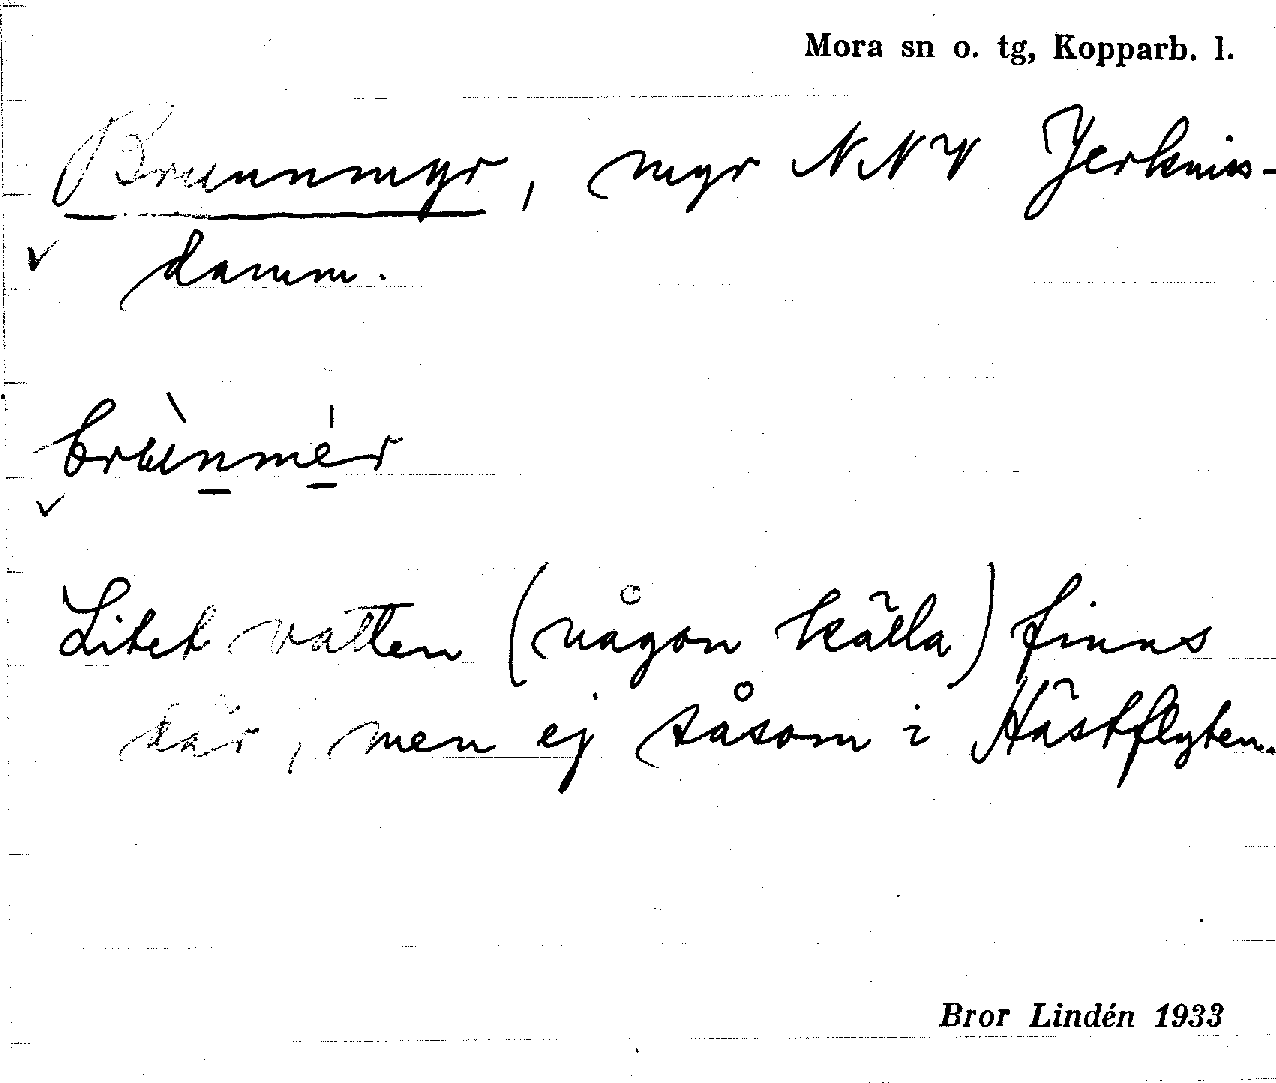 Mora sn o. tg, Kopparb. l.
Brunnmyr, myr NNV Jerkniss-
damm.
brùnmér
Litet vatten (någon källa) finns
där, men ej såsom i Hästflyten.
Bror Lindén 1933